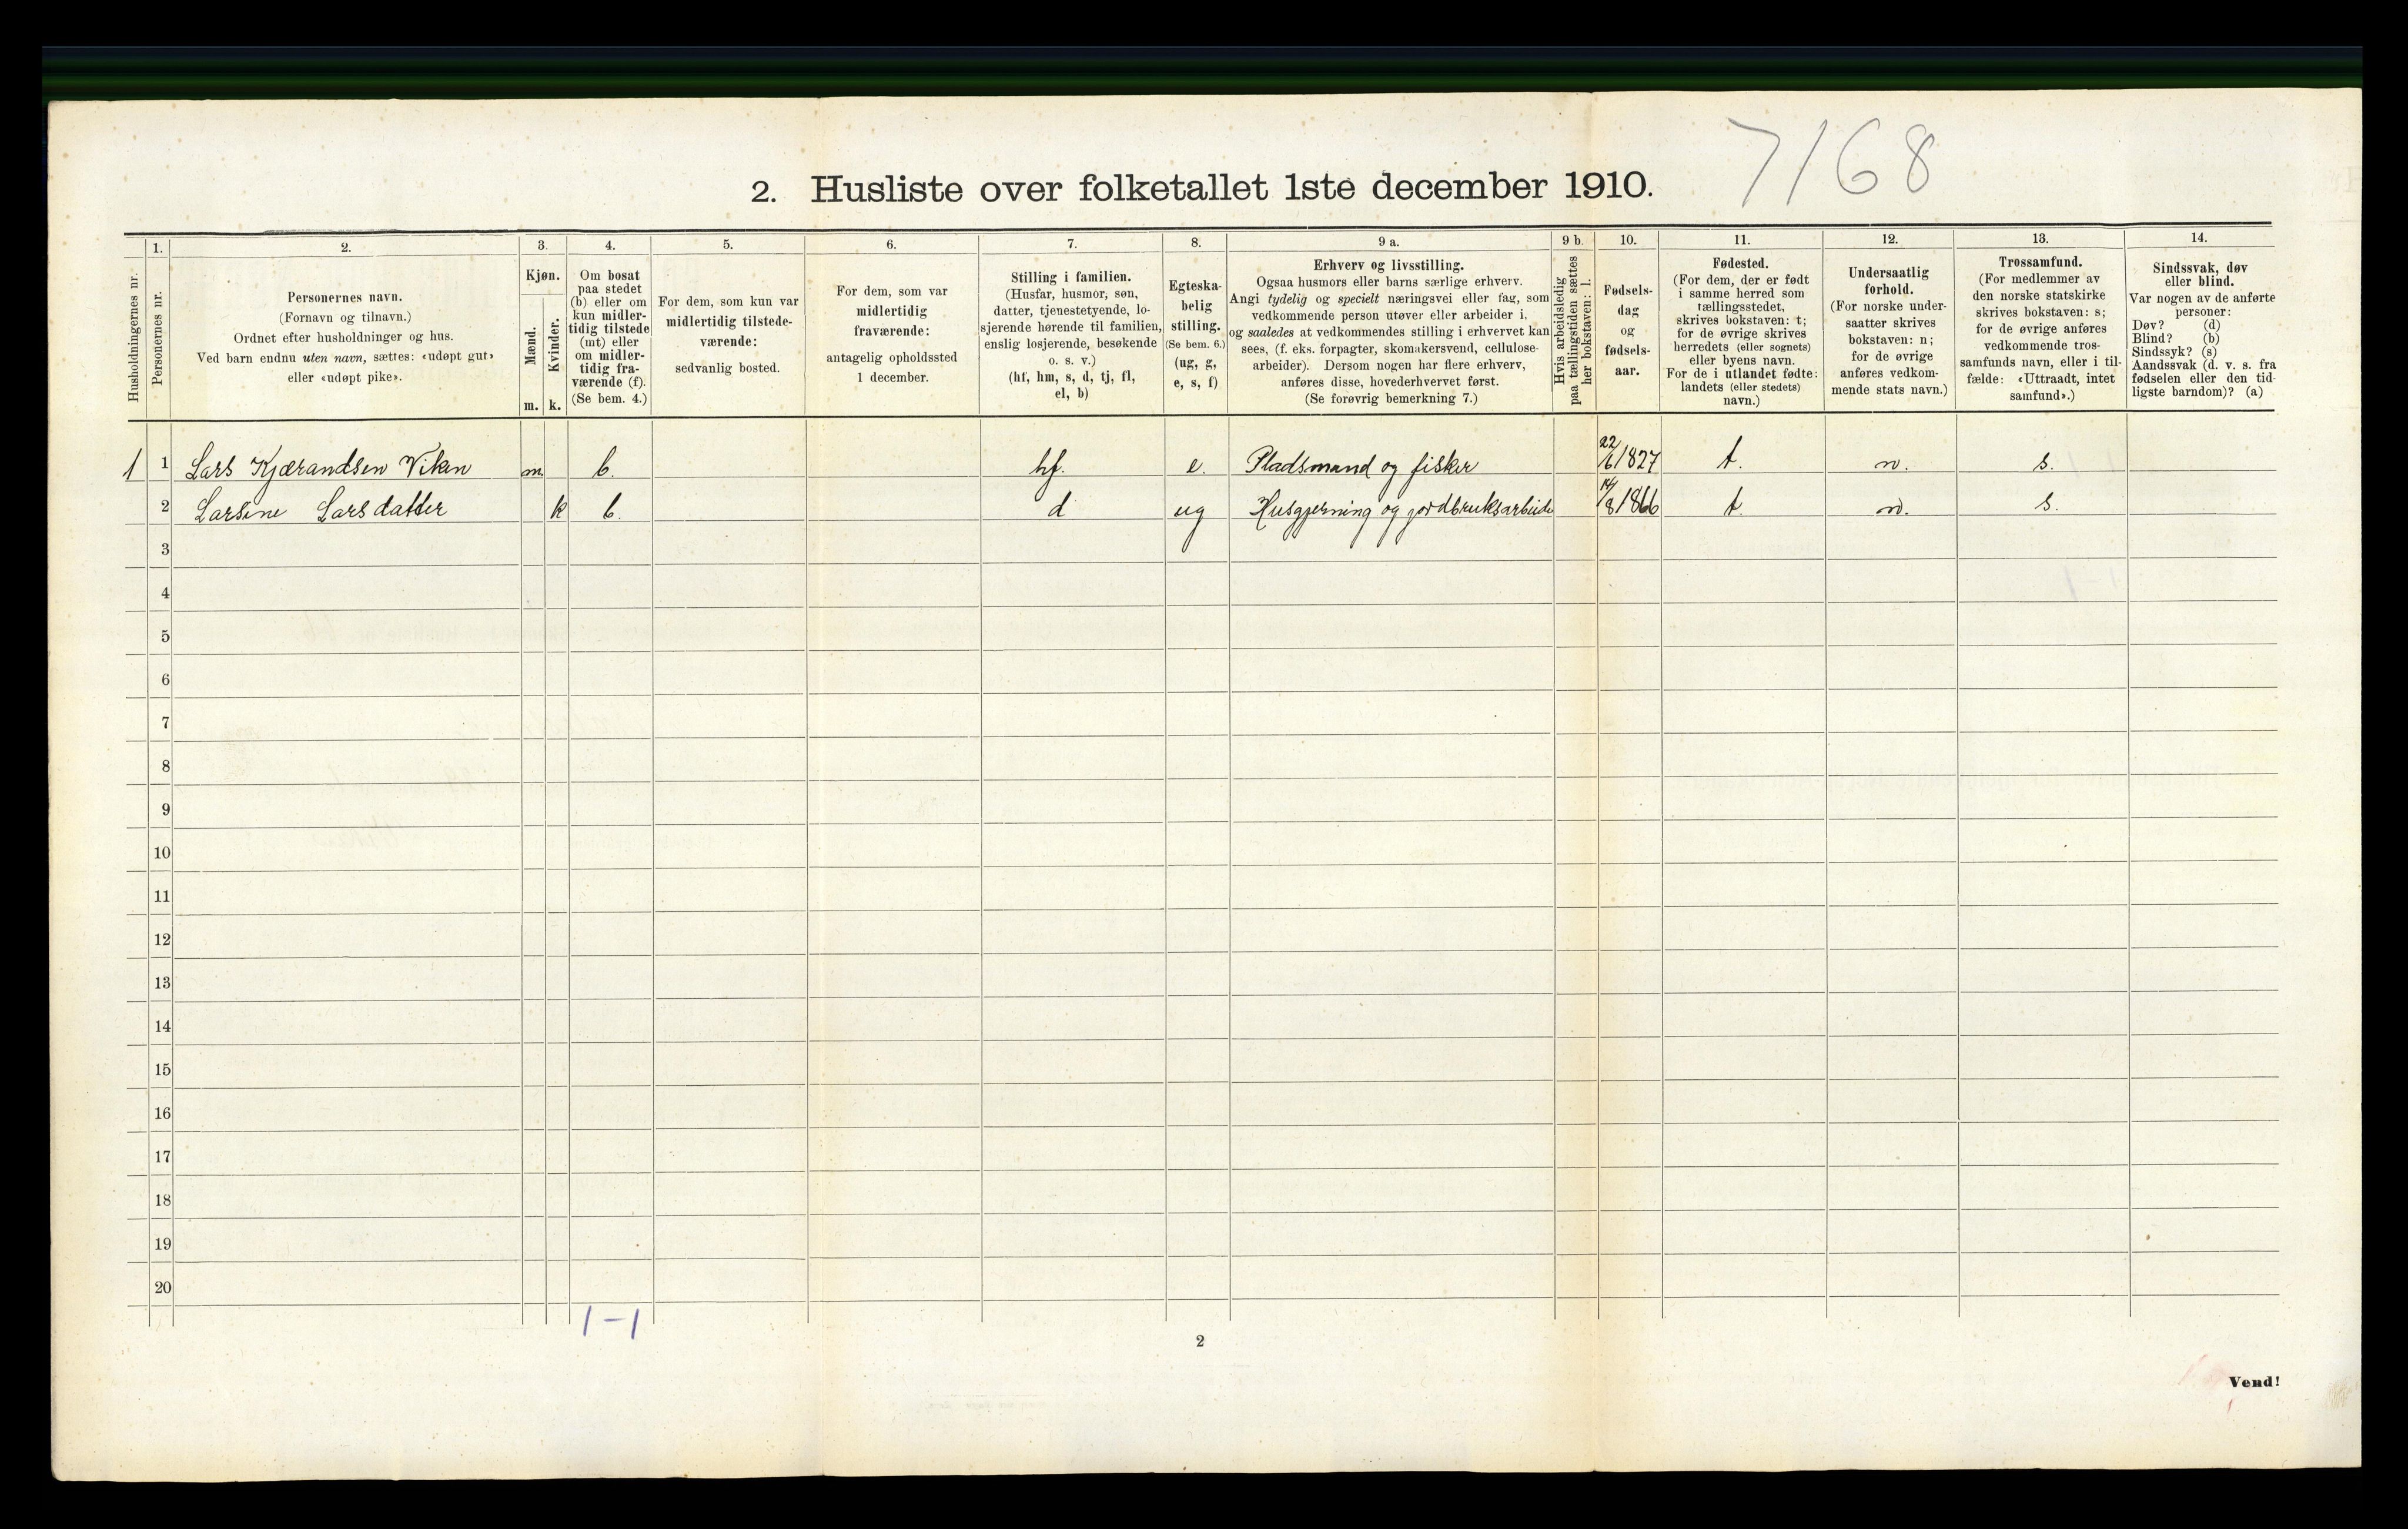 7168
2. Husliste over folketallet 1ste december 1910.
Husholdningernes nr.
1.
Personernes nr.
2.
Personernes navn.
(Fornavn og tilnavn.)
Ordnet efter husholdninger og hus.
Ved barn endnu uten navn, sættes: «udøpt gut»
eller «udøpt pike».
3.
Kjøn.
Mænd.
Kvinder.
m. k.
4.
Om bosat
paa stedet
(b) eller om
kun midler-
tidig tilstede
(mt) eller
om midler-
tidig fra-
værende (f).
(Se bem. 4.)
5.
For dem, som kun var
midlertidig tilstede-
værende:
sedvanlig bosted.
6.
For dem, som var
midlertidig
fraværende:
antagelig opholdssted
1 december.
7.
Stilling i familien.
(Husfar, husmor, søn,
datter, tjenestetyende, lo-
sjerende hørende til familien,
enslig losjerende, besøkende
o. s. v.)
(hf, hm, s, d, tj, fl,
el, b)
8.
Egteska-
belig
stilling.
(Se bem. 6.)
(ug, g,
e, s, f)
9 a.
Erhverv og livsstilling.
Ogsaa husmors eller barns særlige erhverv.
Angi tydelig og specielt næringsvei eller fag, som
vedkommende person utøver eller arbeider i,
og saaledes at vedkommendes stilling i erhvervet kan
sees, (f. eks. forpagter, skomakersvend, cellulose-
arbeider). Dersom nogen har flere erhverv,
anføres disse, hovederhvervet først.
(Se forøvrig bemerkning 7.)
9 b.
Hvis arbeidsledig
paa tællingstiden sættes
her bokstaven: l.
10.
Fødsels-
dag
og
fødsels-
aar.
11.
Fødested.
(For dem, der er født
i samme herred som
tællingsstedet,
skrives bokstaven: t;
for de øvrige skrives
herredets (eller sognets)
eller byens navn.
For de i utlandet fødte:
landets (eller stedets)
navn.)
12.
Undersaatlig
forhold.
(For norske under-
saatter skrives
bokstaven: n;
for de øvrige
anføres vedkom-
mende stats navn.)
13.
Trossamfund.
(For medlemmer av
den norske statskirke
skrives bokstaven: s;
for de øvrige anføres
vedkommende tros-
samfunds navn, eller i til-
fælde: «Uttraadt, intet
samfund».)
14.
Sindssvak, døv
eller blind.
Var nogen av de anførte
personer:
Døv? (d)
Blind? (b)
Sindssyk? (s)
Aandssvak (d. v. s. fra
fødselen eller den tid-
ligste barndom)? (a)
1 1 Lars Kjærandsen Viken m. b. hf. e. Pladsmand og fisker 22/6 1827 t. n. s.
2 Larsine Larsdatter k b. d ug Husgjerning og jordbruksarbeide 14/8 1866 t. n. s.
3
4
5
6
7
8
9
10
11
12
13
14
15
16
17
18
19
20
1-1
2
Vend!